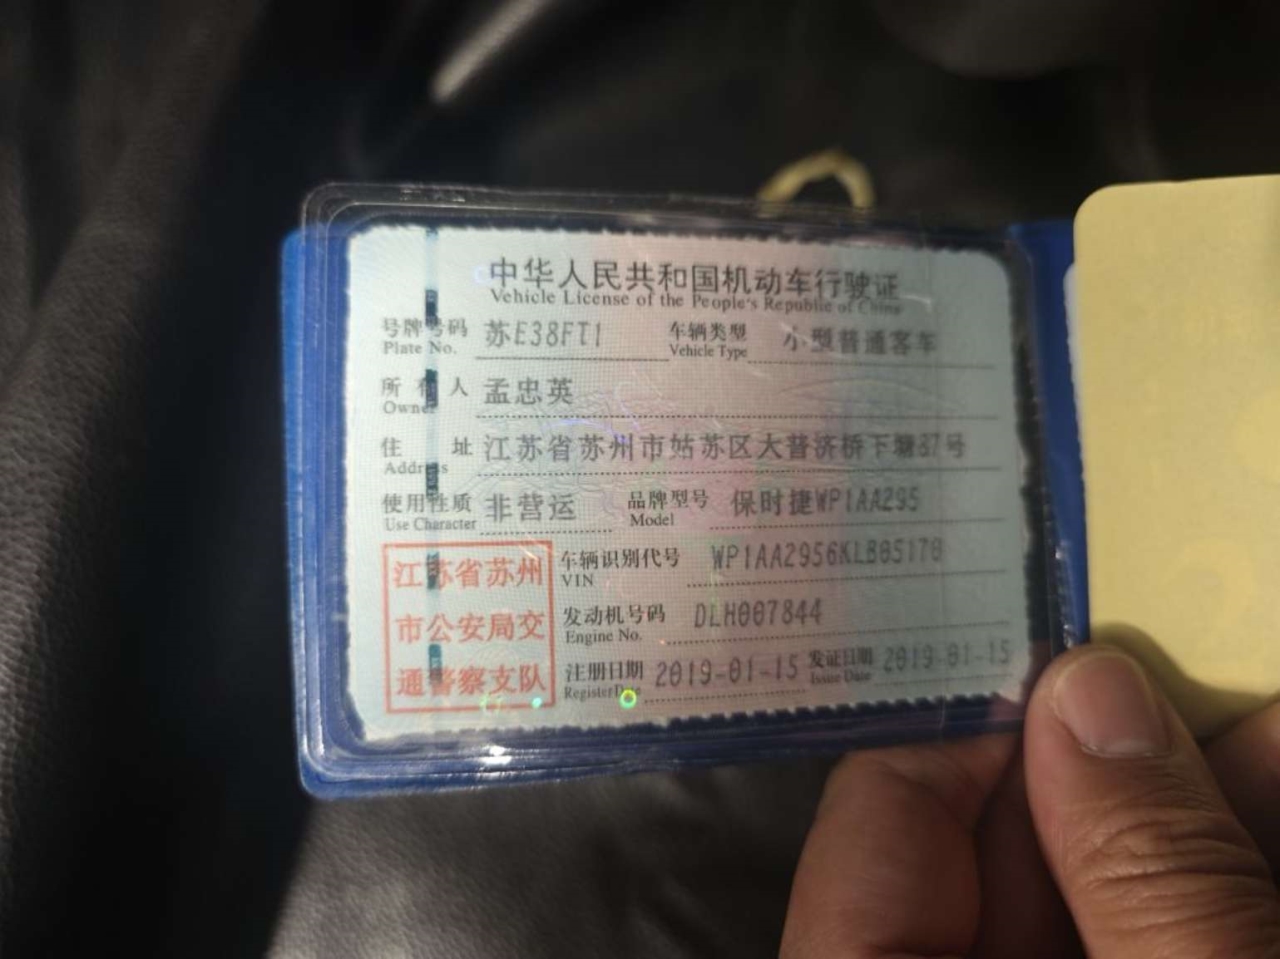 中华人民共和国机动车行驶证
Vehicle License of the People's Republic of China
号牌号码 苏E38FT1 车辆类型 小型普通客车
Plate No. Vehicle Type
所有人 孟忠英
Owner
住址 江苏省苏州市姑苏区大普济桥下塘37号
Address
使用性质 非营运 品牌型号 保时捷WP1AA295
Use Character Model
江苏省苏州
市公安局交
通警察支队
车辆识别代号 WP1AA2956KLB05170
VIN
发动机号码 DLH007844
Engine No.
注册日期 2019-01-15 发证日期 2019-01-15
Register Issue Date